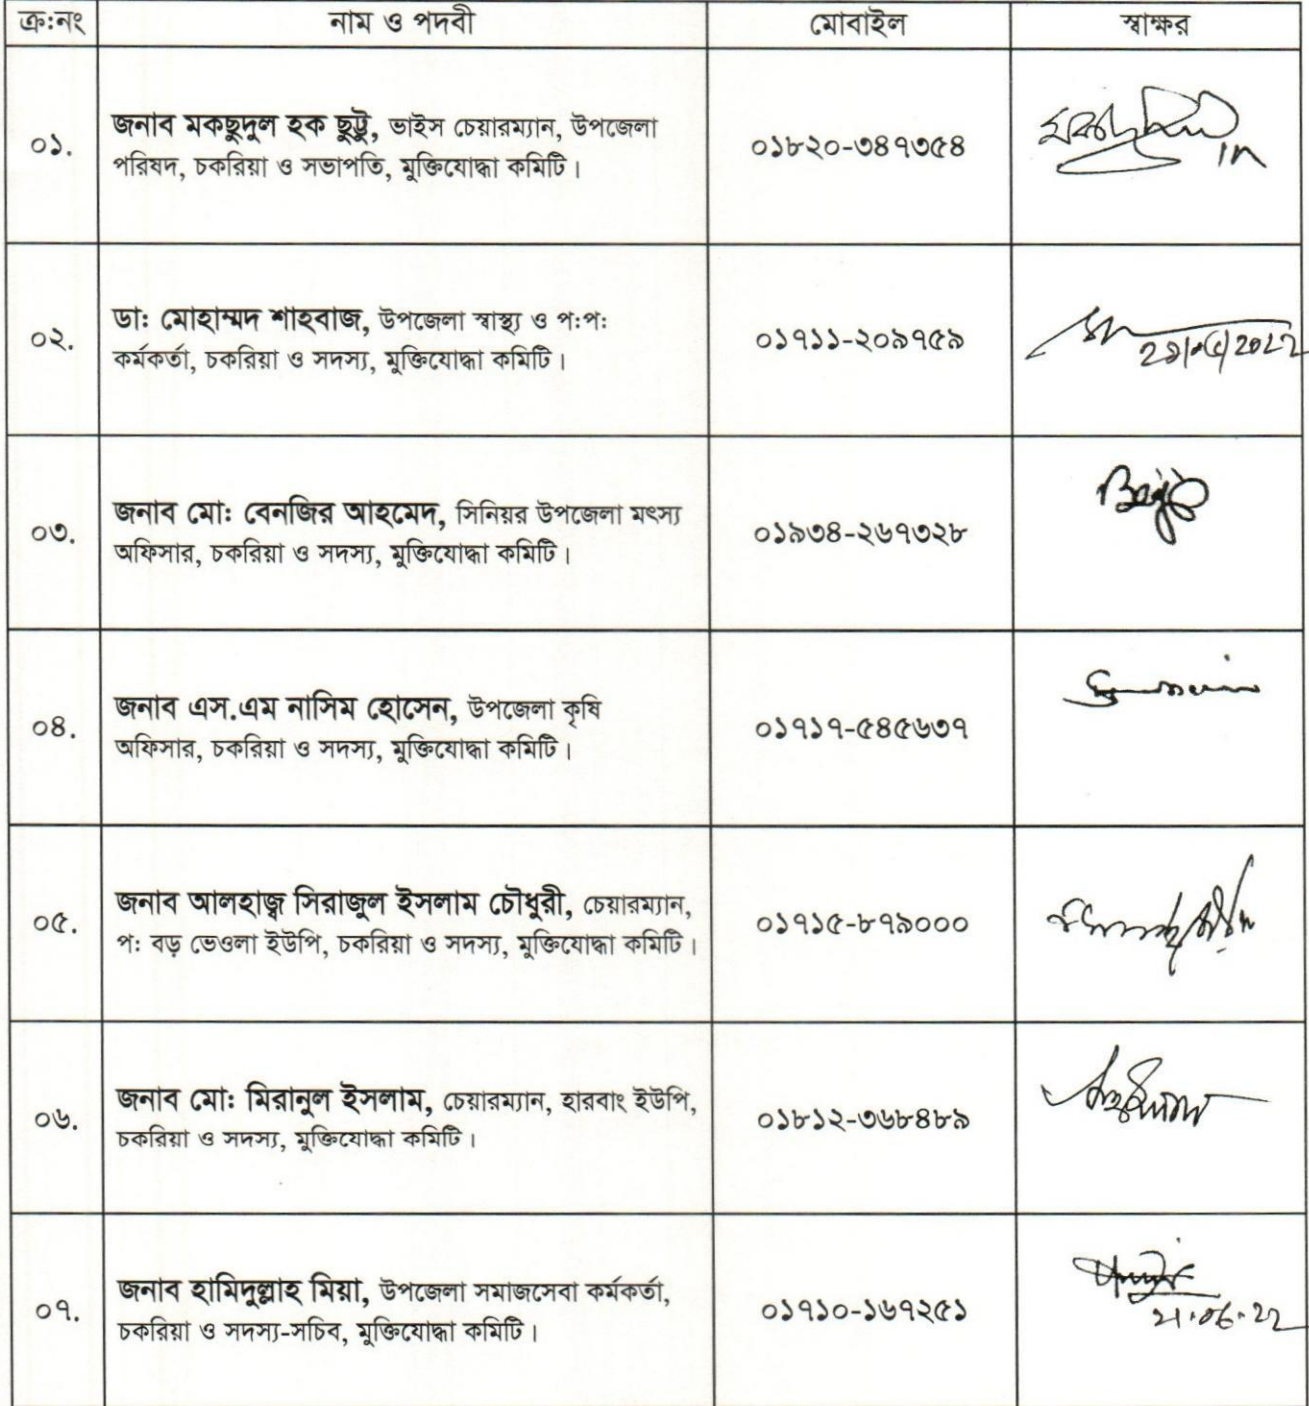 ক্র:নং নাম ও পদবী মোবাইল স্বাক্ষর
০১. জনাব মকছুদুল হক ছুট্টু, ভাইস চেয়ারম্যান, উপজেলা
পরিষদ, চকরিয়া ও সভাপতি, মুক্তিযোদ্ধা কমিটি। ০১৮২০-৩৪৭৩৫৪
০২. ডা: মোহাম্মদ শাহবাজ, উপজেলা স্বাস্থ্য ও প:প:
কর্মকর্তা, চকরিয়া ও সদস্য, মুক্তিযোদ্ধা কমিটি। ০১৭১১-২০৯৭৫৯
০৩. জনাব মো: বেনজির আহমেদ, সিনিয়র উপজেলা মৎস্য
অফিসার, চকরিয়া ও সদস্য, মুক্তিযোদ্ধা কমিটি। ০১৯৩৪-২৬৭৩২৮
০৪. জনাব এস.এম নাসিম হোসেন, উপজেলা কৃষি
অফিসার, চকরিয়া ও সদস্য, মুক্তিযোদ্ধা কমিটি। ০১৭১৭-৫৪৫৬৩৭
০৫. জনাব আলহাজ্ব সিরাজুল ইসলাম চৌধুরী, চেয়ারম্যান,
প: বড় ভেওলা ইউপি, চকরিয়া ও সদস্য, মুক্তিযোদ্ধা কমিটি। ০১৭১৫-৮৭৯০০০
০৬. জনাব মো: মিরানুল ইসলাম, চেয়ারম্যান, হারবাং ইউপি,
চকরিয়া ও সদস্য, মুক্তিযোদ্ধা কমিটি। ০১৮১২-৩৬৮৪৮৯
০৭. জনাব হামিদুল্লাহ মিয়া, উপজেলা সমাজসেবা কর্মকর্তা,
চকরিয়া ও সদস্য-সচিব, মুক্তিযোদ্ধা কমিটি। ০১৭১০-১৬৭২৫১
21.06.22